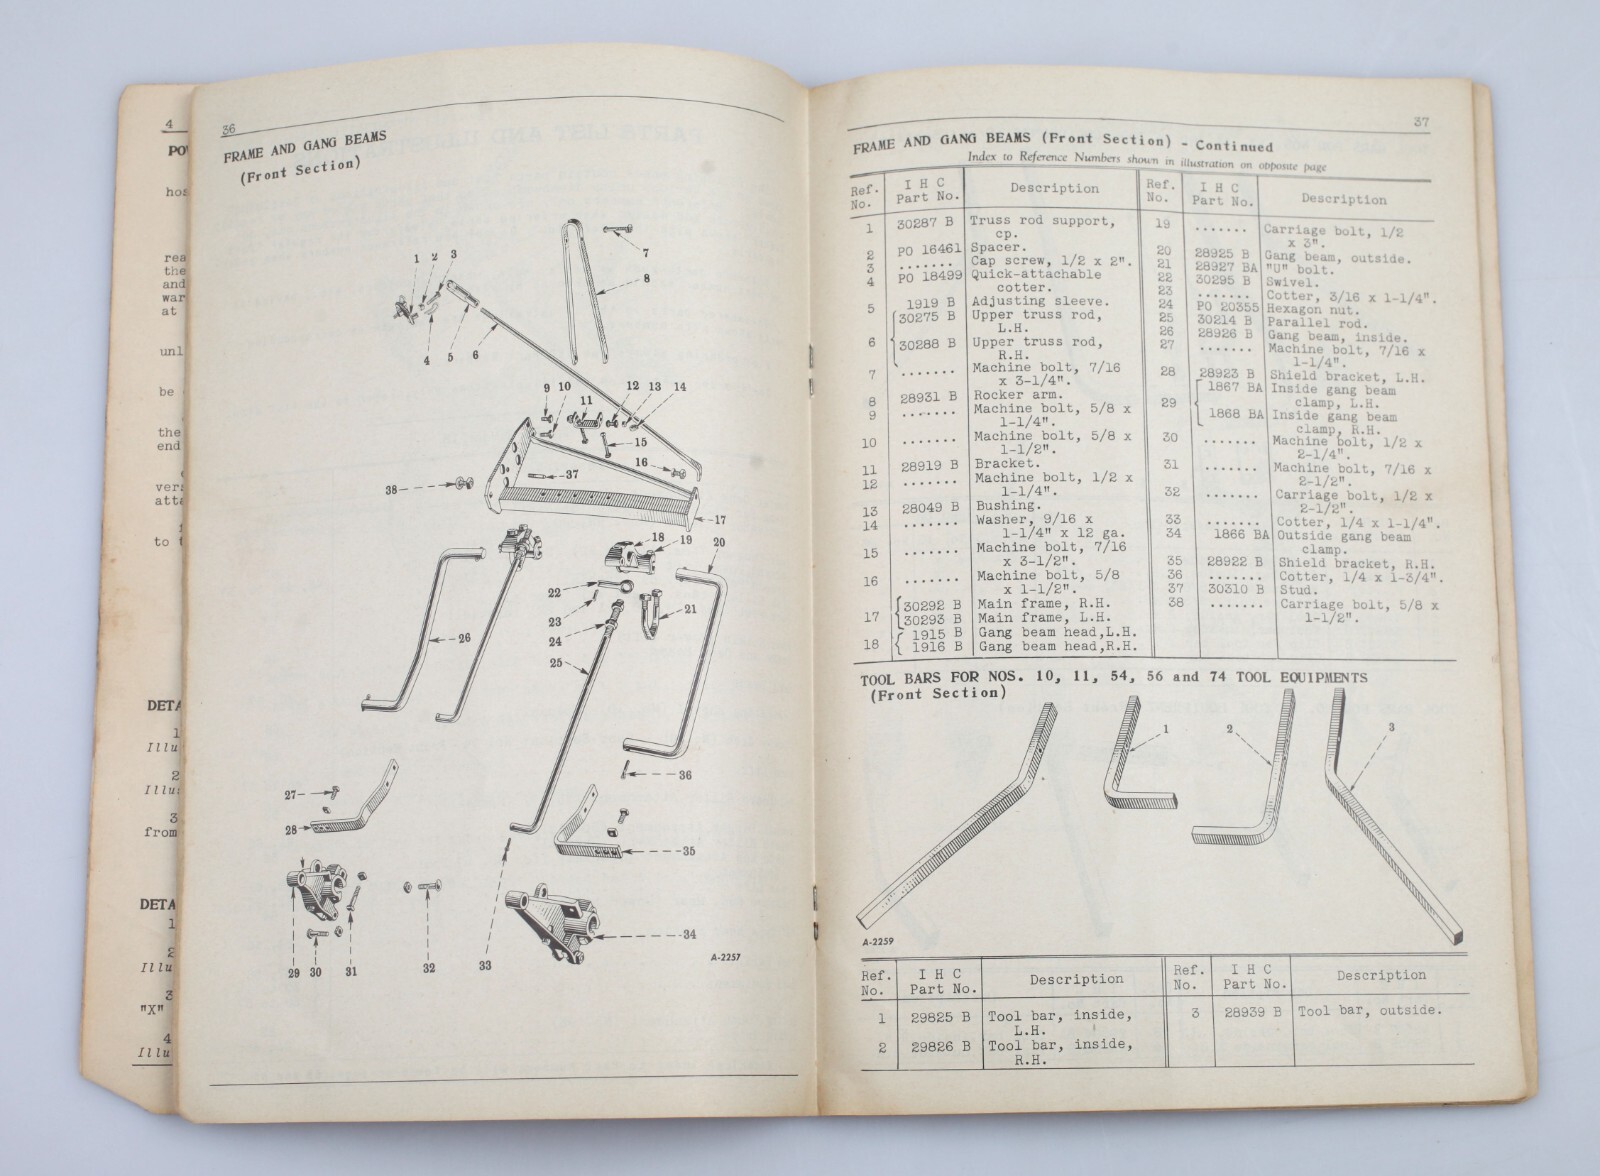 4
PO
hos
rea
the
and
war
at
unl
be
the
end
vers
atta
to
DETA
1
Illu
2
Illu
3
from
DETA
1
2
Illu
3
"X"
4
Illu
36
FRAME AND GANG BEAMS
(Front Section)
1 2 3
7
8
4 5 6
9 10 11 12 13 14
15
16
37
38
17
18 19 20
22
21
23
24
26
25
36
27
28
35
29 30 31 32 33
34
A-2257
37
FRAME AND GANG BEAMS (Front Section) - Continued
Index to Reference Numbers shown in illustration on opposite page
Ref. No. I H C Part No. Description
1 30287 B Truss rod support,
cp.
2 PO 16461 Spacer.
3 ....... Cap screw, 1/2 x 2".
4 PO 18499 Quick-attachable
cotter.
5 1919 B Adjusting sleeve.
6 30275 B Upper truss rod,
L.H.
30288 B Upper truss rod,
R.H.
7 ....... Machine bolt, 7/16
x 3-1/4".
8 28931 B Rocker arm.
9 ....... Machine bolt, 5/8 x
1-1/4".
10 ....... Machine bolt, 5/8 x
1-1/2".
11 28919 B Bracket.
12 ....... Machine bolt, 1/2 x
1-1/4".
13 28049 B Bushing.
14 ....... Washer, 9/16 x
1-1/4" x 12 ga.
15 ....... Machine bolt, 7/16
x 3-1/2".
16 ....... Machine bolt, 5/8
x 1-1/2".
17 30292 B Main frame, R.H.
30293 B Main frame, L.H.
18 1915 B Gang beam head,L.H.
1916 B Gang beam head,R.H.
Ref. No. I H C Part No. Description
19 ....... Carriage bolt, 1/2
x 3".
20 28925 B Gang beam, outside.
21 28927 BA "U" bolt.
22 30295 B Swivel.
23 ....... Cotter, 3/16 x 1-1/4".
24 PO 20355 Hexagon nut.
25 30214 B Parallel rod.
26 28926 B Gang beam, inside.
27 ....... Machine bolt, 7/16 x
1-1/4".
28 28923 B Shield bracket, L.H.
29 1867 BA Inside gang beam
clamp, L.H.
1868 BA Inside gang beam
clamp, R.H.
30 ....... Machine bolt, 1/2 x
2-1/4".
31 ....... Machine bolt, 7/16 x
2-1/2".
32 ....... Carriage bolt, 1/2 x
2-1/2".
33 ....... Cotter, 1/4 x 1-1/4".
34 1866 BA Outside gang beam
clamp.
35 28922 B Shield bracket, R.H.
36 ....... Cotter, 1/4 x 1-3/4".
37 30310 B Stud.
38 ....... Carriage bolt, 5/8 x
1-1/2".
TOOL BARS FOR NOS. 10, 11, 54, 56 and 74 TOOL EQUIPMENTS
(Front Section)
1 2 3
A-2259
Ref. No. I H C Part No. Description Ref. No. I H C Part No. Description
1 29825 B Tool bar, inside, 3 28939 B Tool bar, outside.
L.H.
2 29826 B Tool bar, inside,
R.H.